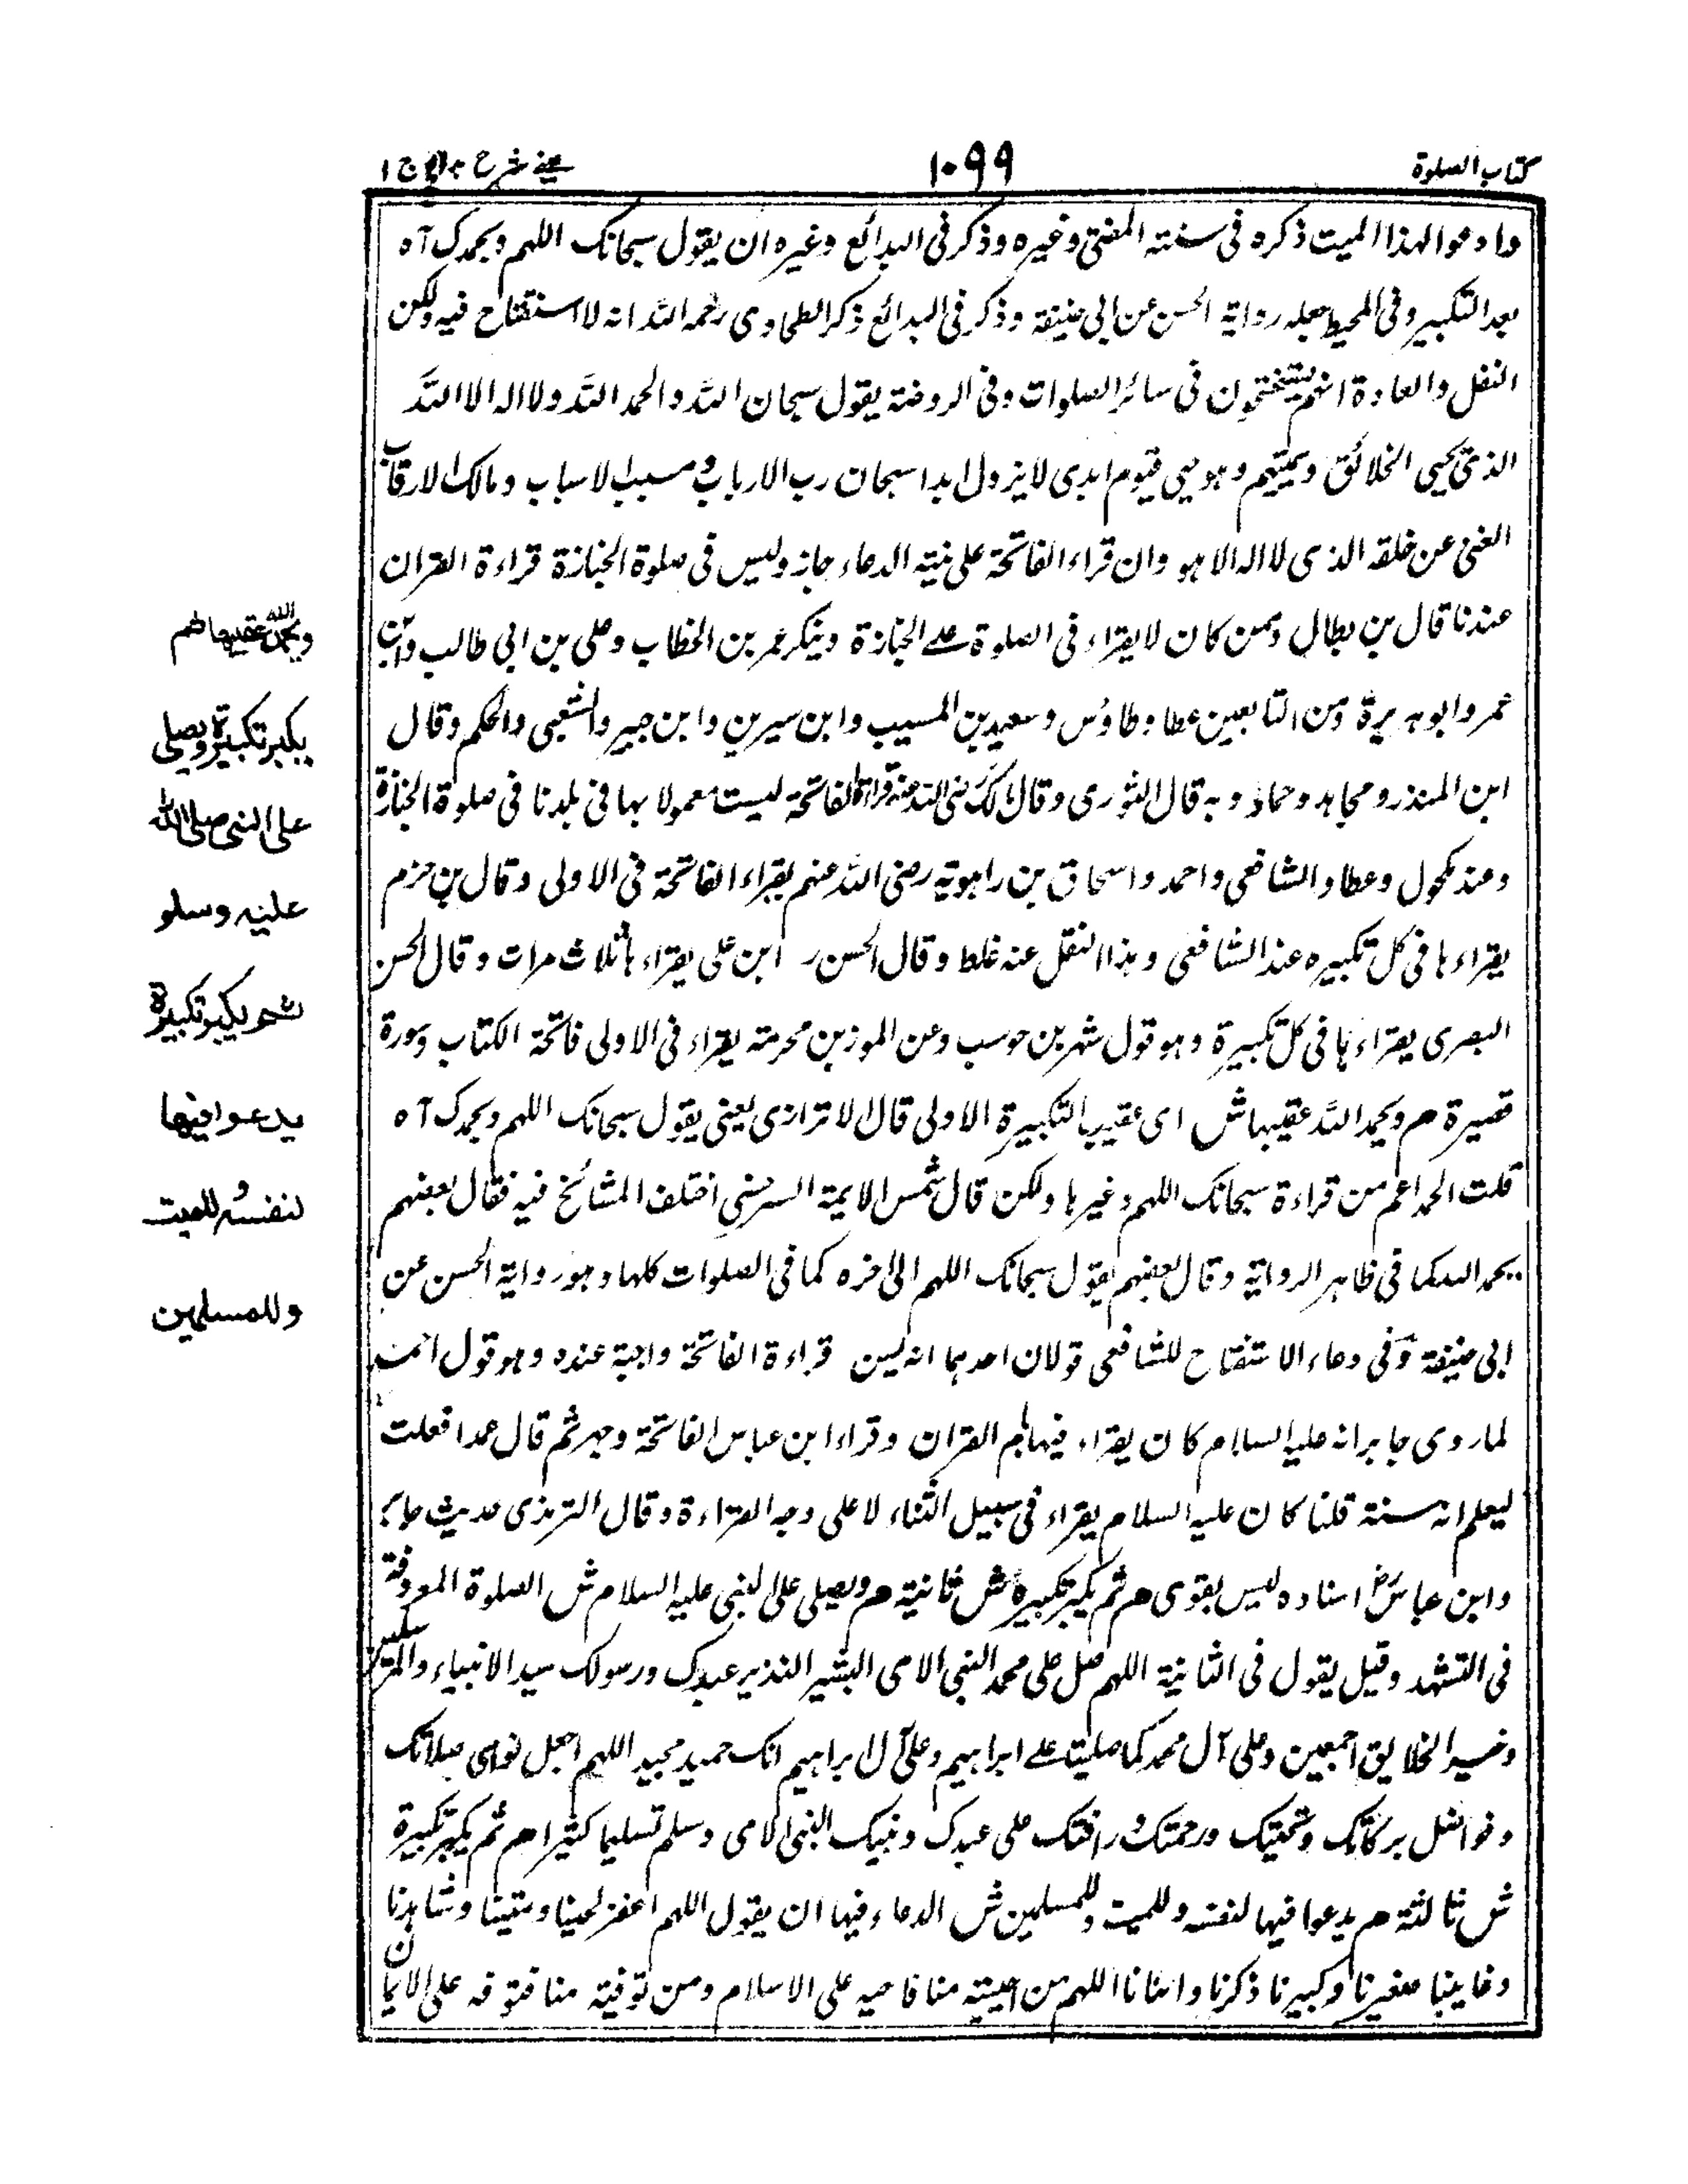 كتاب الصلوة
١٠٩٩
عينى شرح هدايه ج ١
وادعوا لهذا الميت ذكره فى سنته المفتى وغيره وذكر فى البدائع وغيره ان يقول سبحانك اللهم وبحمدك آه
بعد التكبير وفى المحيط جعله رواية الحسن عن ابى حنيفة وذكر فى البدائع ذكر الطحاوى رحمه الله انه لا استفتاح فيه ولكن
النفل والعادة انهم يستفتحون فى سائر الصلوات وفى الروضة يقول سبحان الله والحمد الله ولا اله الا الله
الذى يحيى الخلائق ويميتهم وهو حى قيوم ابدى لا يزول ابدا سبحان رب الارباب ومسبب الاسباب ومالك الارقاب
الغنى عن خلقه الذى لا اله الا هو وان قراء الفاتحة على نيته الدعاء جاز وليس فى صلوة الجنازة قراءة القران
عندنا قال بن بطال ومن كان لا يقراء فى الصلوة على الجنازة وينكر عمر بن الخطاب وعلى بن ابى طالب وابن
عمر وابو هريرة ومن التابعين عطا وطاؤس وسعيد بن المسيب وابن سيرين وابن جبير والشعبى والحكم وقال
ابن المنذر ومجاهد وحماد وبه قال الثورى وقال مالك رضى الله عنه قراءة الفاتحة ليست معمولا بها فى بلدنا فى صلوة الجنازة
وعند مكحول وعطا والشافعى واحمد واسحاق بن راهويه رضى الله عنهم يقراء الفاتحة فى الاولى وقال بن حزم
يقراء ها فى كل تكبيره عند الشافعى وهذا النقل عنه غلط وقال الحسن ر ابن على يقراء ها ثلاث مرات وقال الحسن
البصرى يقراء ها فى كل تكبيرة وهو قول شهر بن حوسب وعن الموز بن مخرمته يقراء فى الاولى فاتحة الكتاب وسورة
قصيرة م ويحمد الله عقيبها ش اى عقيب التكبيرة الاولى قال الاترازى يعنى يقول سبحانك اللهم وبحمدك آه
قلت الحمد اعم من قراءة سبحانك اللهم وغيرها ولكن قال شمس الايمة السرخسى اختلف المشائخ فيه فقال بعضهم
يحمد الله كما فى ظاهر الرواية وقال بعضهم يقول سبحانك اللهم الى اخره كما فى الصلوات كلها وهو رواية الحسن عن
ابى حنيفة وفى دعاء الاستفتاح للشافعى قولان احدهما انه ليس قراءة الفاتحة واجبة عنده وهو قول احمد
لما روى جابر انه عليه السلام كان يقراء فيها بام القران وقراء ابن عباس الفاتحة وجهر ثم قال عمدا فعلت
ليعلم انه سنة قلنا كان عليه السلام يقراء فى سبيل الثناء لا على وجه القراءة وقال الترمذى حديث جابر
وابن عباس رض اسناده ليس بقوى م ثم يكبر تكبيرة ش ثانية م ويصلى على النبى عليه السلام ش الصلوة المعروفة
فى التشهد وقيل يقول فى الثانية اللهم صل على محمد النبى الامى البشير النذير عبدك ورسولك سيد الانبياء والمرسلين
وخير الخلايق اجمعين وعلى آل محمد كما صليت على ابراهيم وعلى آل ابراهيم انك حميد مجيد اللهم اجعل نوامى صلاتك
وفواضل بركاتك وتحيتك ورحمتك ورافتك على عبدك ونبيك النبى الامى وسلم تسليما كثيرا م ثم يكبر تكبيرة
ش ثالثة م يدعوا فيها لنفسه وللميت وللمسلمين ش الدعاء فيها ان يقول اللهم اغفر لحينا وميتنا وشاهدنا
وغايبنا صغيرنا وكبيرنا ذكرنا وانثانا اللهم من احييته منا فاحيه على الاسلام ومن توفيته منا فتوفه على الايمان
ويحمد الله عقيبها ثم
يكبر تكبيرة ويصلى
على النبى صلى الله
عليه وسلم
ثم يكبر تكبيرة
يدعوا فيها
لنفسه وللميت
وللمسلمين